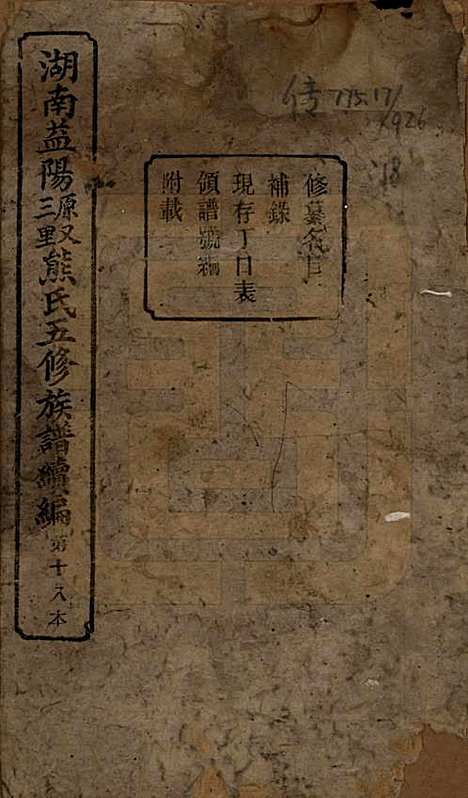 湖南益陽三里源又熊氏五修族譜續編第十八本
修墓名目
補錄
現存丁口表
領譜號編
附載
传 775.17/
/926
:18